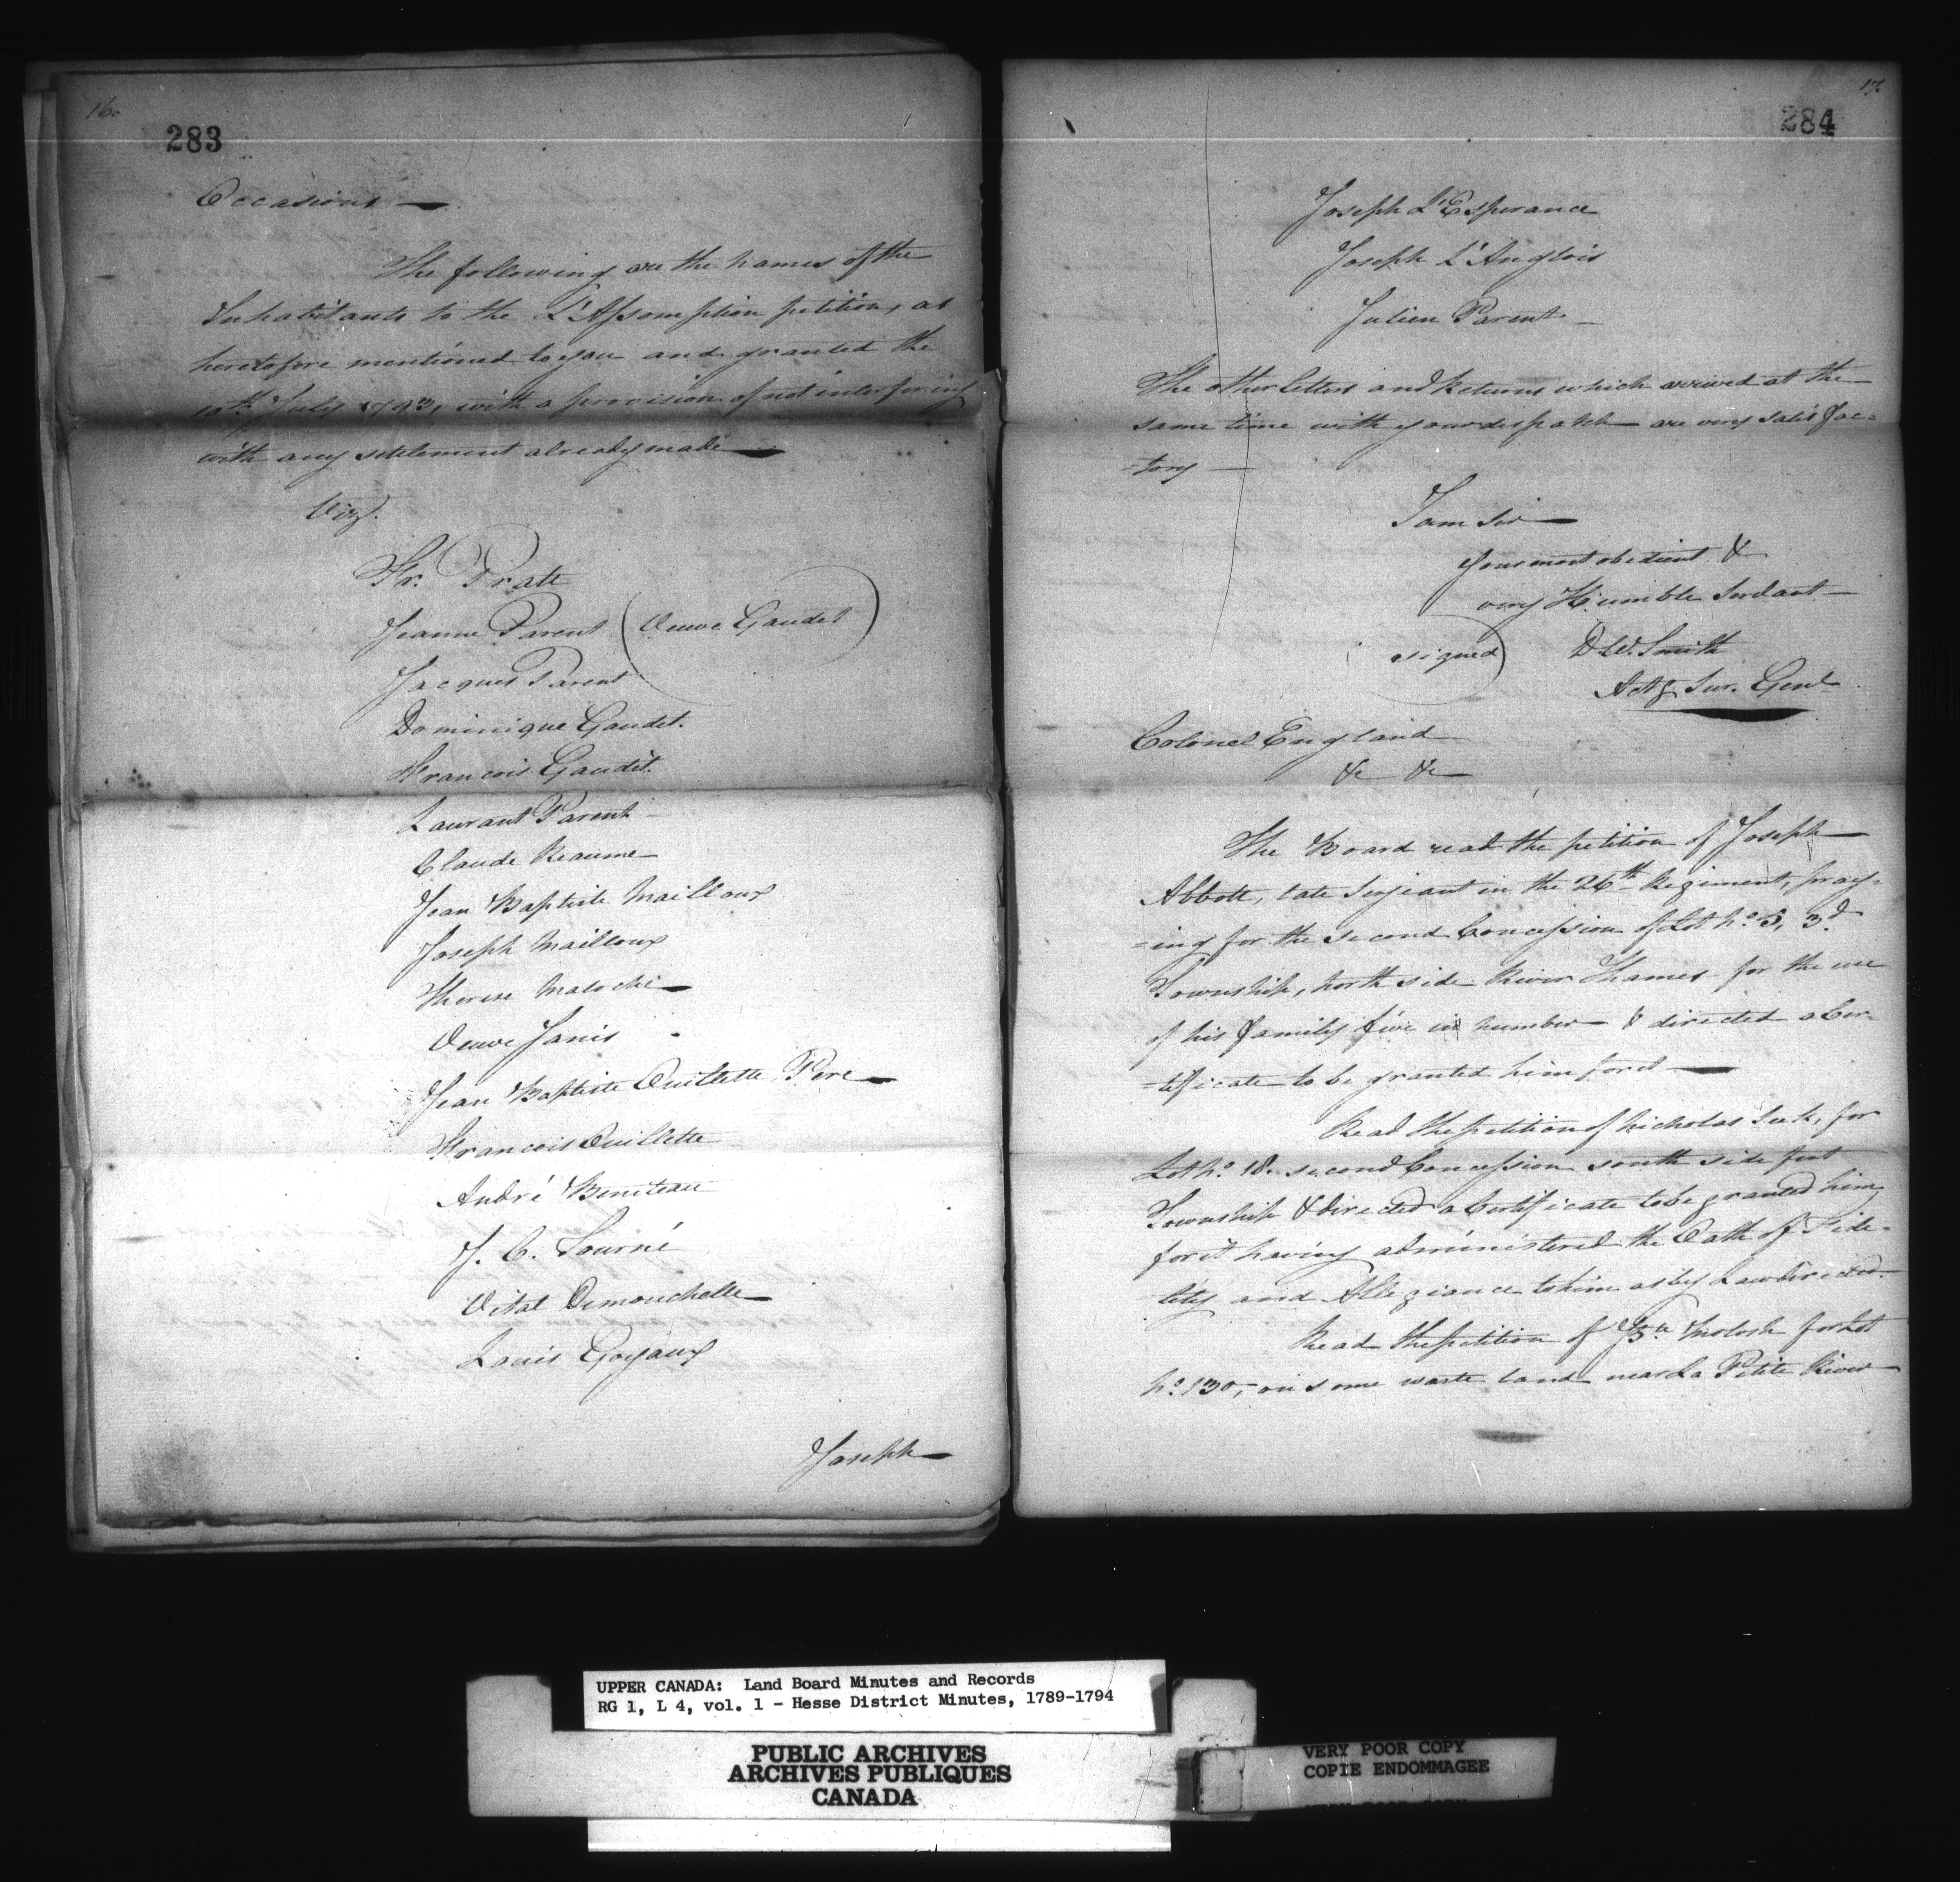 16.
283
Occasions —
The following are the names of the
Inhabitants to the L'Assomption petition, as
heretofore mentioned to you and granted the
10th July 1793, with a provision of not interfering
with any settlement already made —
Viz.
Fr. Prate
Jeanne Parent (Veuve Gaudet)
Jacques Parent
Dominique Gaudet.
Francois Gaudet.
Laurant Parent
Claude Reaume
Jean Baptiste Mailloux
Joseph Mailloux
Therese Matoche
Veuve Janis
Jean Baptiste Ouillette Pere
Francois Ouillette
André Beniteau
J. C. Fourné
Vital Dimouchelle
Louis Goyaux
Joseph
17.
284
Joseph L'Esperance
Joseph L'Anglois
Julien Parent
The other letters and Returns which arrived at the
same time with your dispatch are very satisfac-
-tory —
I am Sir
Your most obedient &
very Humble Servant
signed) D. W. Smith
Actg. Sur. Genl
Colonel England
&c &c
The Board read the petition of Joseph
Abbott, late Serjeant in the 26th Regiment, pray-
-ing for the second Concession of Lot No. 5, 3d.
Township, North side River Thames for the use
of his family five in number & directed a Cer-
-tificate to be granted him for it —
Read the petition of Nicholas for
Lot No. 18. second Concession south side first
Township & directed a Certificate to be granted him
for it having administered the Oath of Fide-
lity and Allegiance to him as by Law directed.
Read the petition of for Lot
No. 130, on some waste land near La Petite River
UPPER CANADA: Land Board Minutes and Records
RG 1, L 4, vol. 1 - Hesse District Minutes, 1789-1794
PUBLIC ARCHIVES
ARCHIVES PUBLIQUES
CANADA
VERY POOR COPY
COPIE ENDOMMAGEE